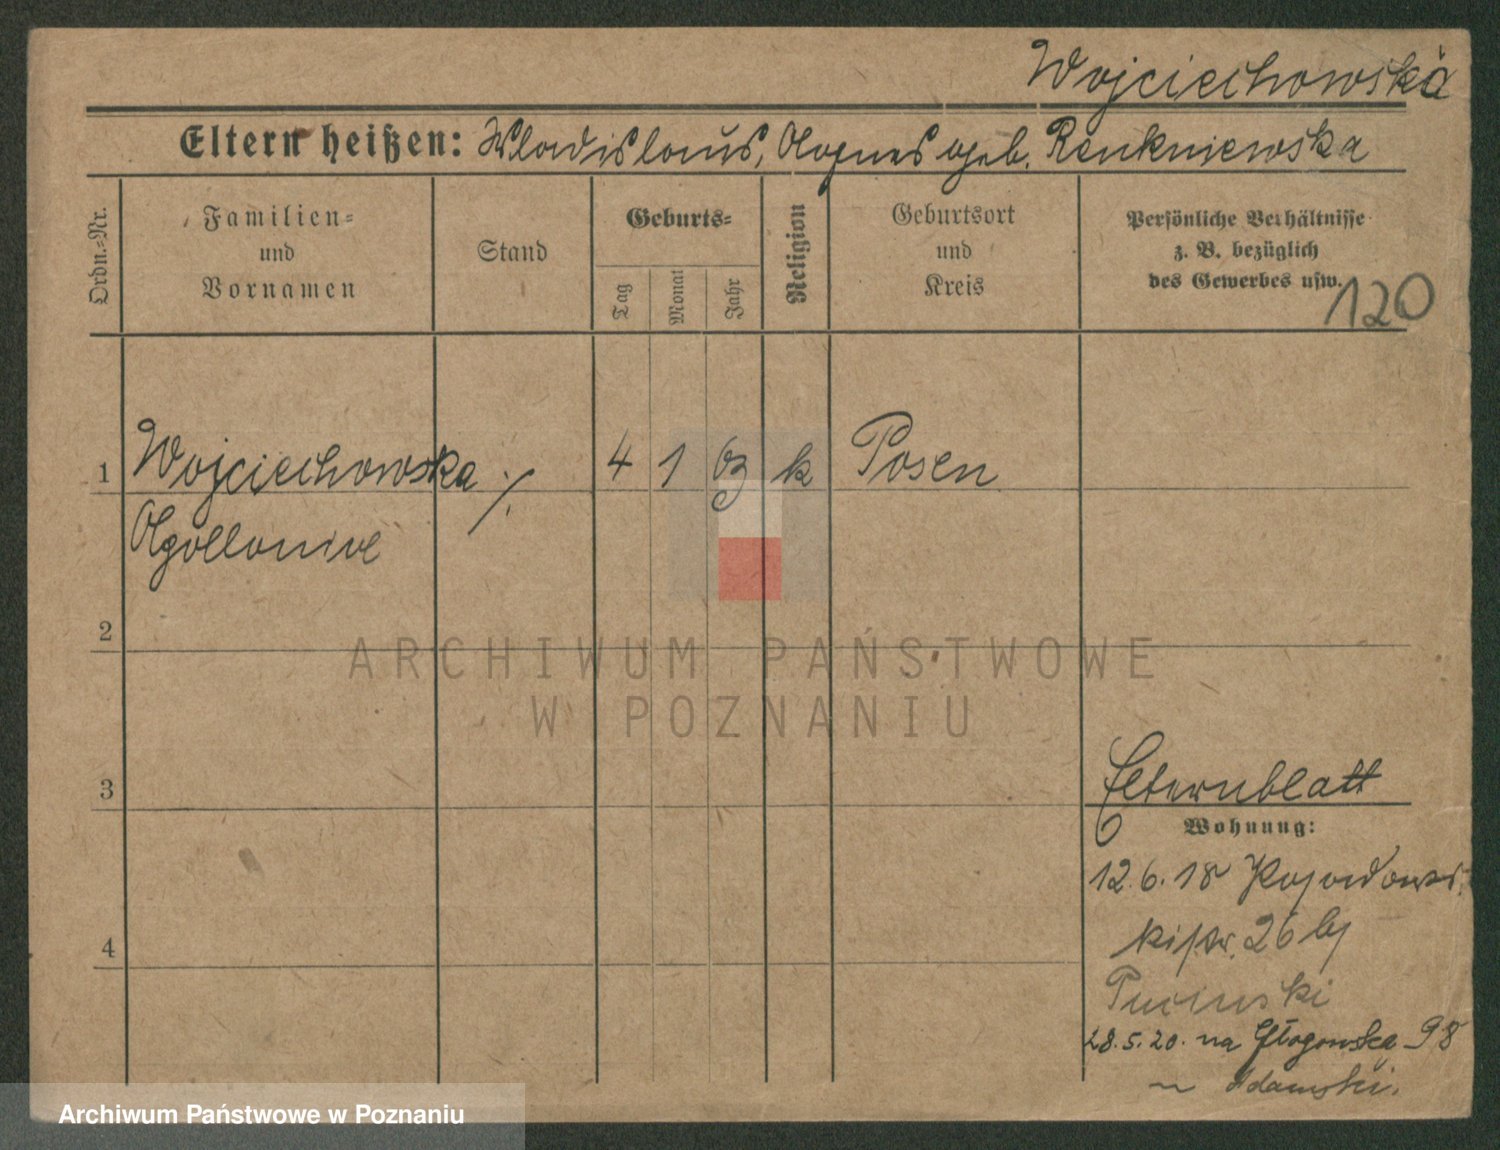 Wojciechowska
Eltern heißen: Wladislaus, Agnes geb. Renkniewska
Ordn.-Nr.
Familien-
und
Vornamen
Stand
Geburts-
Tag
Monat
Jahr
Religion
Geburtsort
und
Kreis
Persönliche Verhältnisse
z. B. bezüglich
des Gewerbes usw.
120
1 Wojciechowska ⁒ 4 1 03 k Posen
Apollonie
2
ARCHIWUM PAŃSTWOWE
W POZNANIU
3
Elternblatt
Wohnung:
12.6.18
26 bj
4
28.5.20. na Głogowska 98
Adamski.
Archiwum Państwowe w Poznaniu